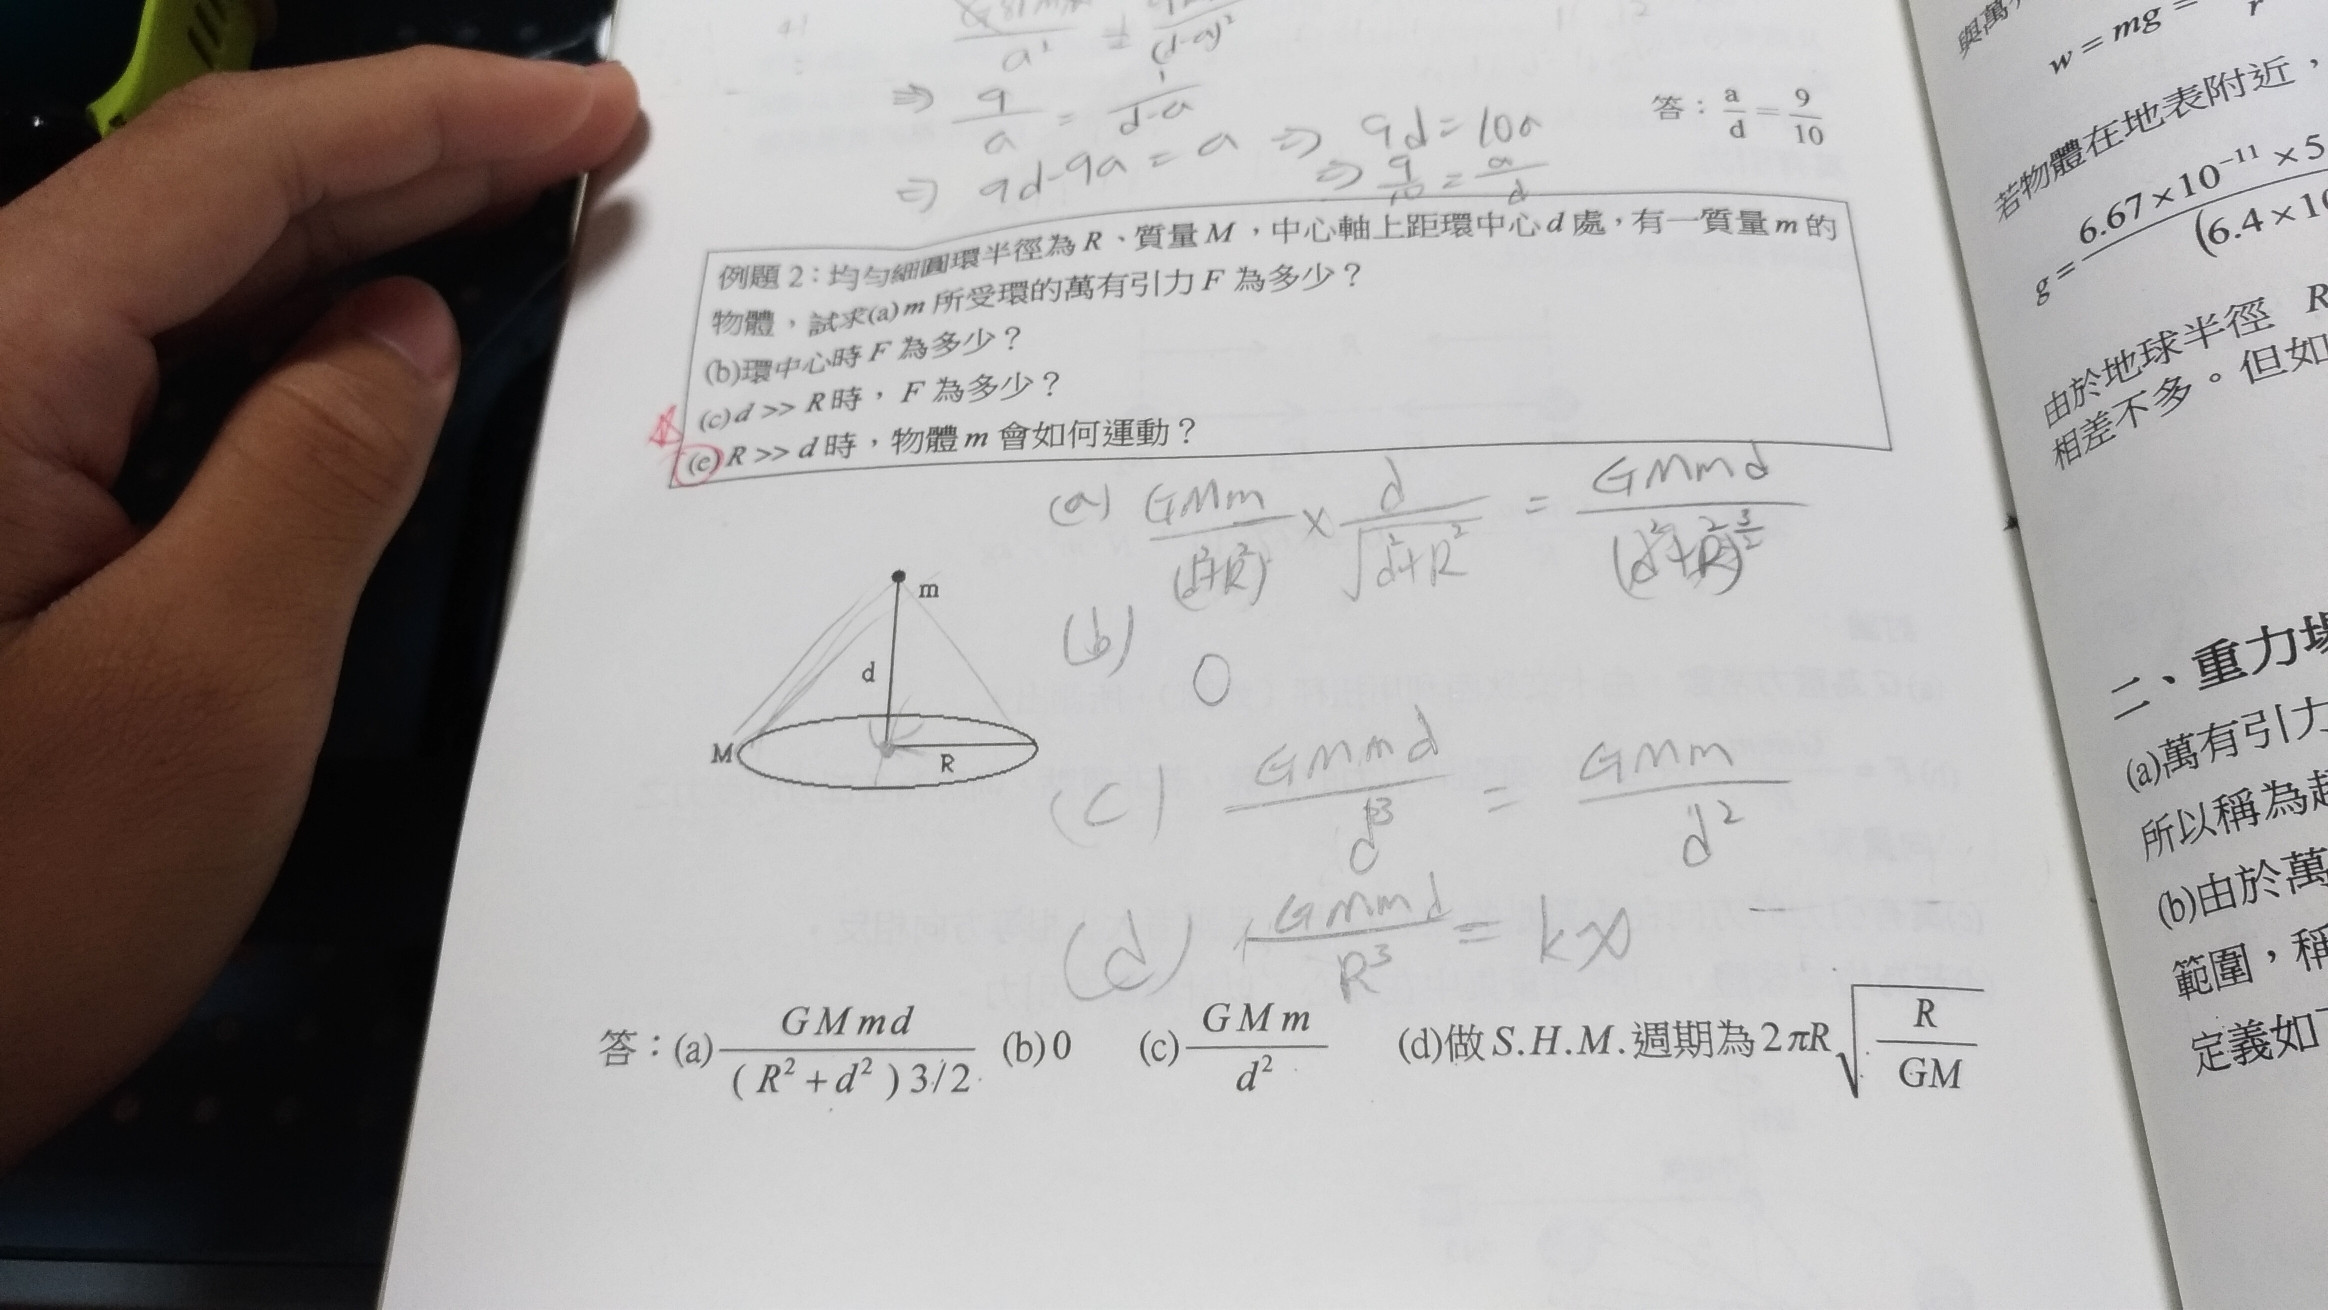 a²
(d-a)²
⇒ 9/a = 1/(d-a)
⇒ 9d-9a = a ⇒ 9d = 10a
⇒ 9/10 = a/d
答：a/d = 9/10
例題 2：均勻細圓環半徑為 R、質量 M，中心軸上距環中心 d 處，有一質量 m 的
物體，試求(a) m 所受環的萬有引力 F 為多少？
(b)環中心時 F 為多少？
(c) d >> R 時，F 為多少？
(e) R >> d 時，物體 m 會如何運動？
(a) GMm/(d²+R²) × d/√(d²+R²) = GMmd/(d²+R²)^(3/2)
m
d
M
R
(b) 0
(c) GMmd/d³ = GMm/d²
(d) GMmd/R³ = kx
答：(a) GMmd/(R²+d²)3/2 (b) 0 (c) GMm/d² (d)做 S.H.M.週期為 2πR√(R/GM)
與萬
w = mg =
r
若物體在地表附近，
g = 6.67×10⁻¹¹×5
(6.4×10
由於地球半徑 R
相差不多。但如
二、重力場
(a)萬有引力
所以稱為超
(b)由於萬
範圍，稱
定義如下